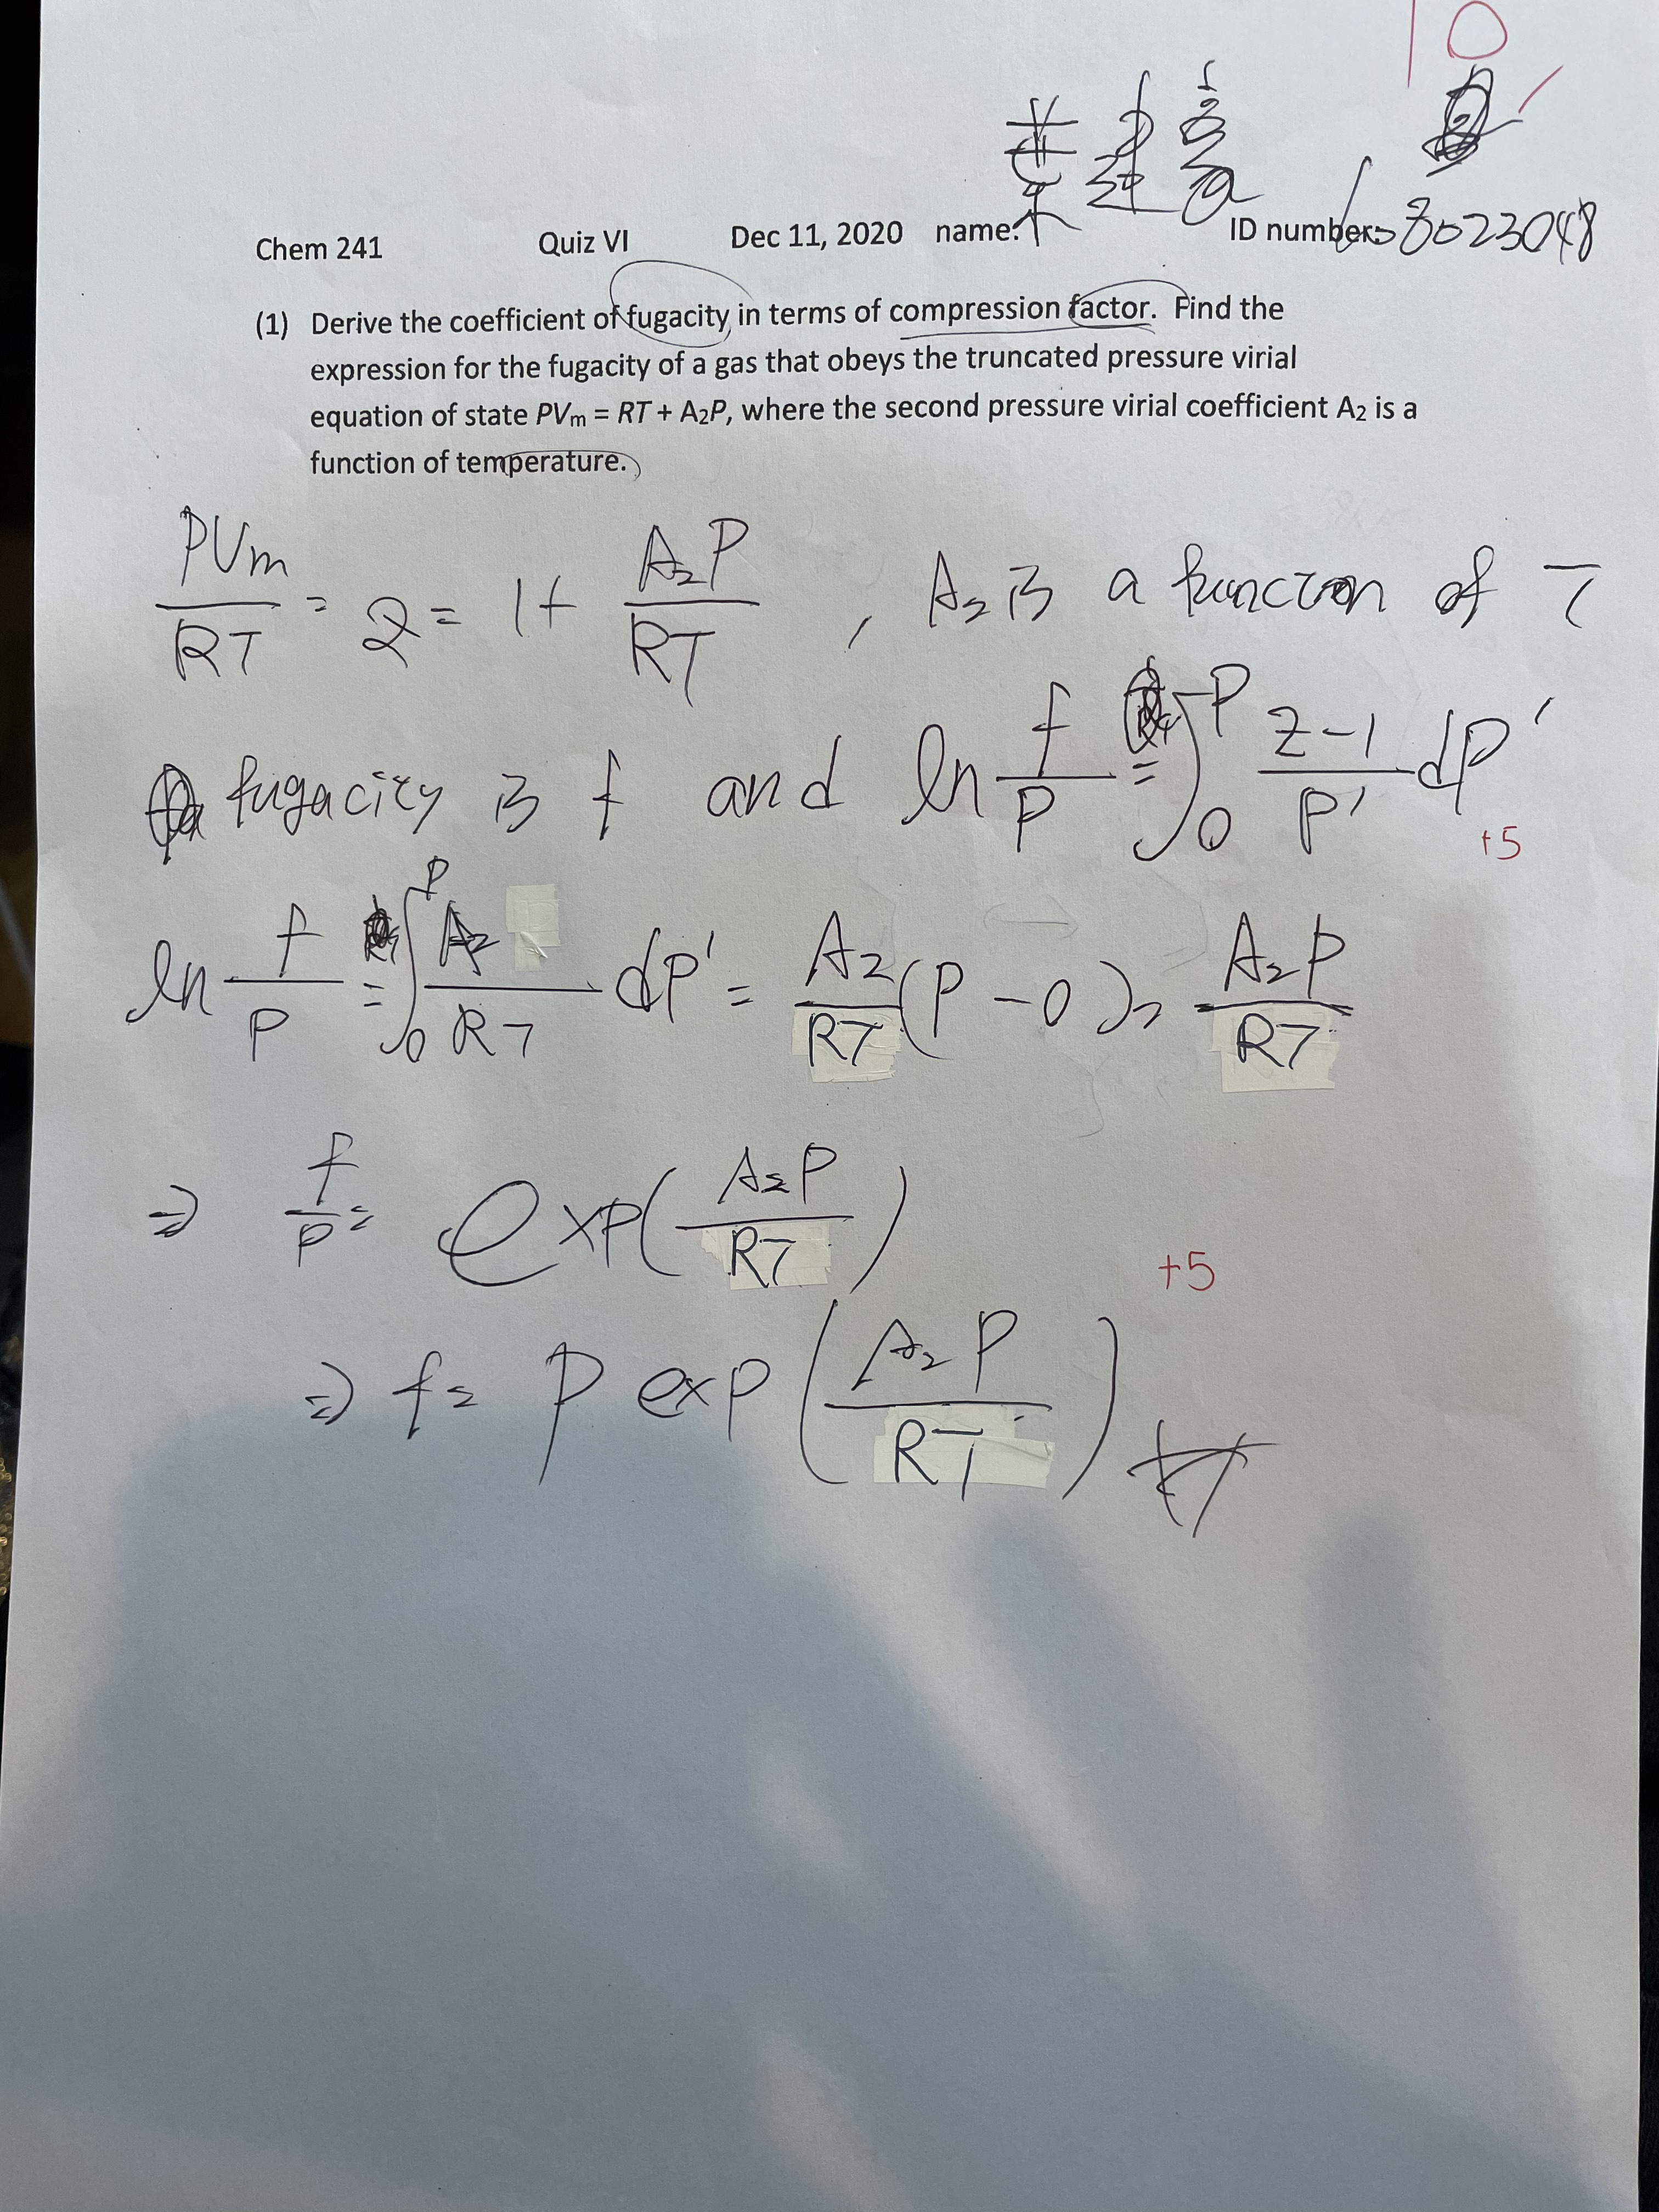 10
Chem 241 Quiz VI Dec 11, 2020 name: ID number: 8023048
(1) Derive the coefficient of fugacity in terms of compression factor. Find the
expression for the fugacity of a gas that obeys the truncated pressure virial
equation of state PVm = RT + A2P, where the second pressure virial coefficient A2 is a
function of temperature.
PVm/RT = Z = 1+ A2P/RT , A2 is a function of T
fugacity is f and ln f/P = ∫0^P (Z-1)/P' dP'
+5
ln f/P = ∫0^P A2/RT dP' = A2/RT (P-0) = A2P/RT
⇒ f/P = exp(A2P/RT)
+5
⇒ f = P exp(A2P/RT)